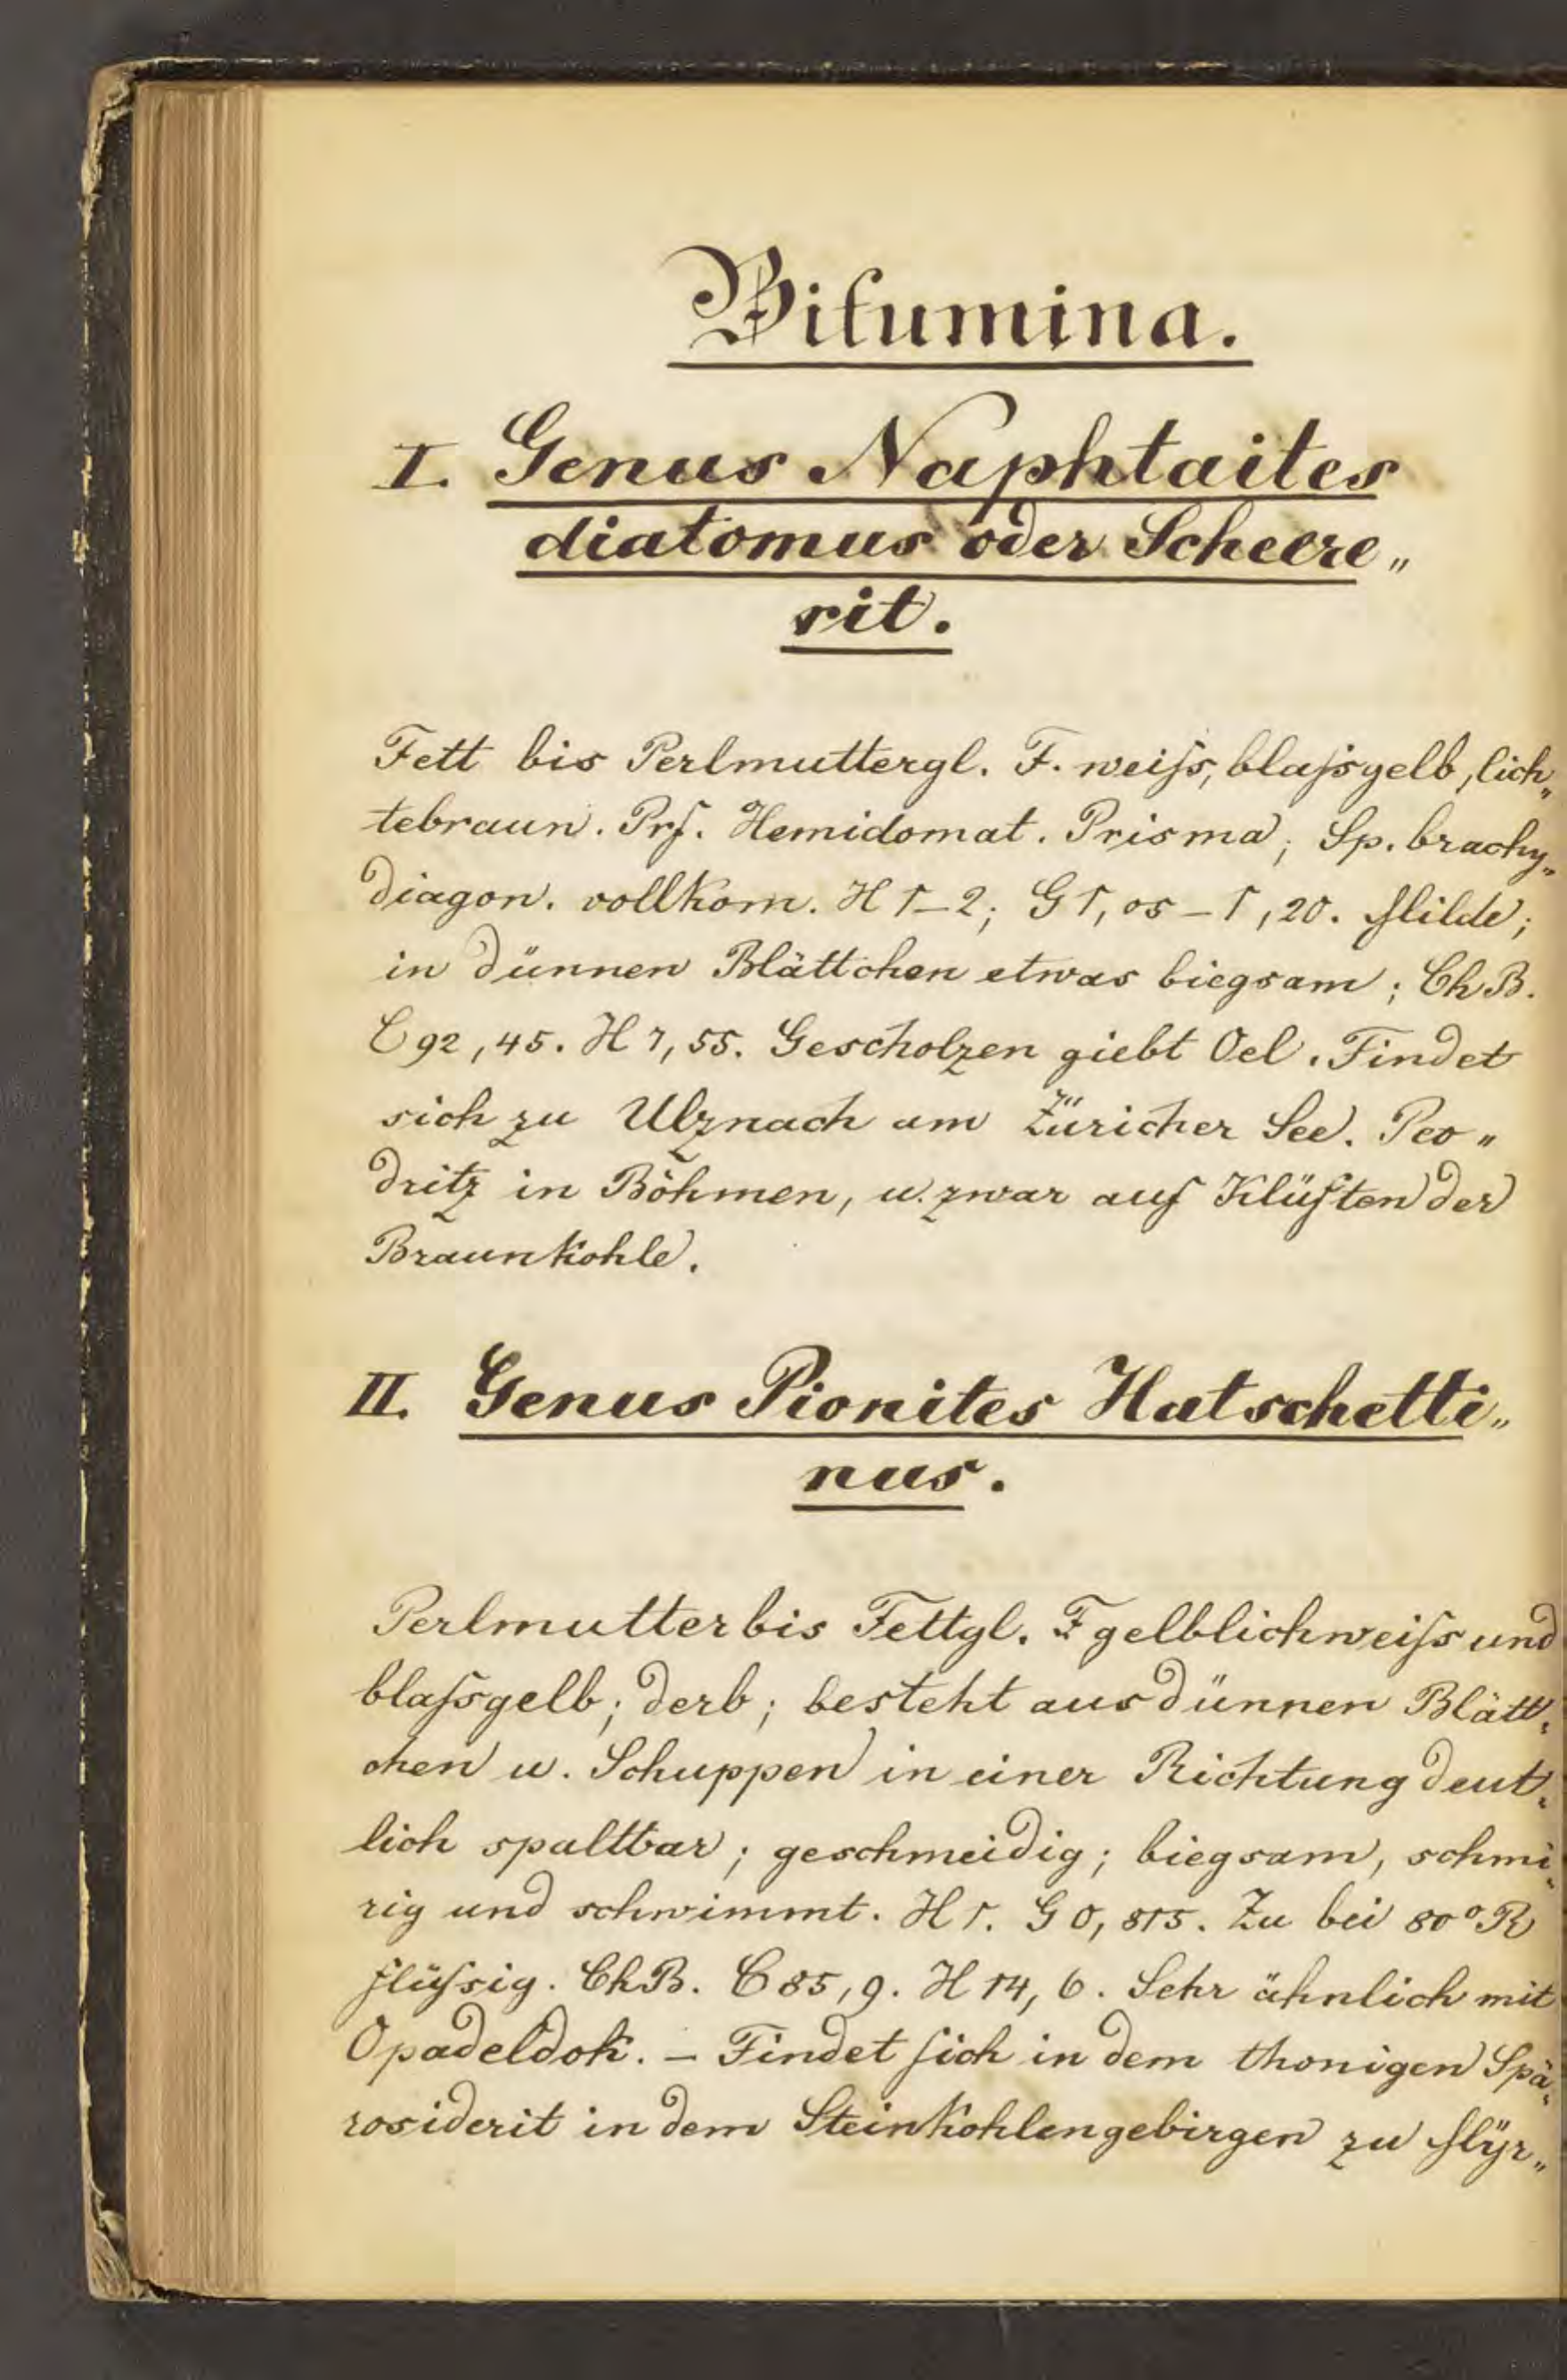 Bitumina.
I. Genus Naphtaites
diatomus oder Scheere„
rit.
Fett bis Perlmuttergl. F. weiſs, blaſsgelb, lich„
tebraun. Prſ. Hemidomat. Prisma; Sp. brachy„
diagon. vollkom. H 1–2; G 1,05–1,20. Milde;
in dünnen Blättchen etwas biegsam; ChB.
C 92,45. H 7,55. Gescholzen giebt Oel. Findet
sich zu Ulznach am Züricher See. Peo„
dritz in Böhmen, u. zwar auf Klüften der
Braunkohle.
II. Genus Pionites Hatschetti„
nus.
Perlmutter bis Fettgl. F gelblichweiſs und
blaſsgelb; derb; besteht aus dünnen Blätt„
chen u. Schuppen in einer Richtung deut„
lich spaltbar; geschmeidig; biegsam, schmi„
rig und schwimmt. H 1. G 0,815. Zu bei 80° R
flüſsig. ChB. C 85,9. H 14,6. Sehr ähnlich mit
Opadeldok. – Findet ſich in dem thonigen Spä„
rosiderit in dem Steinkohlengebirgen zu Mÿr„